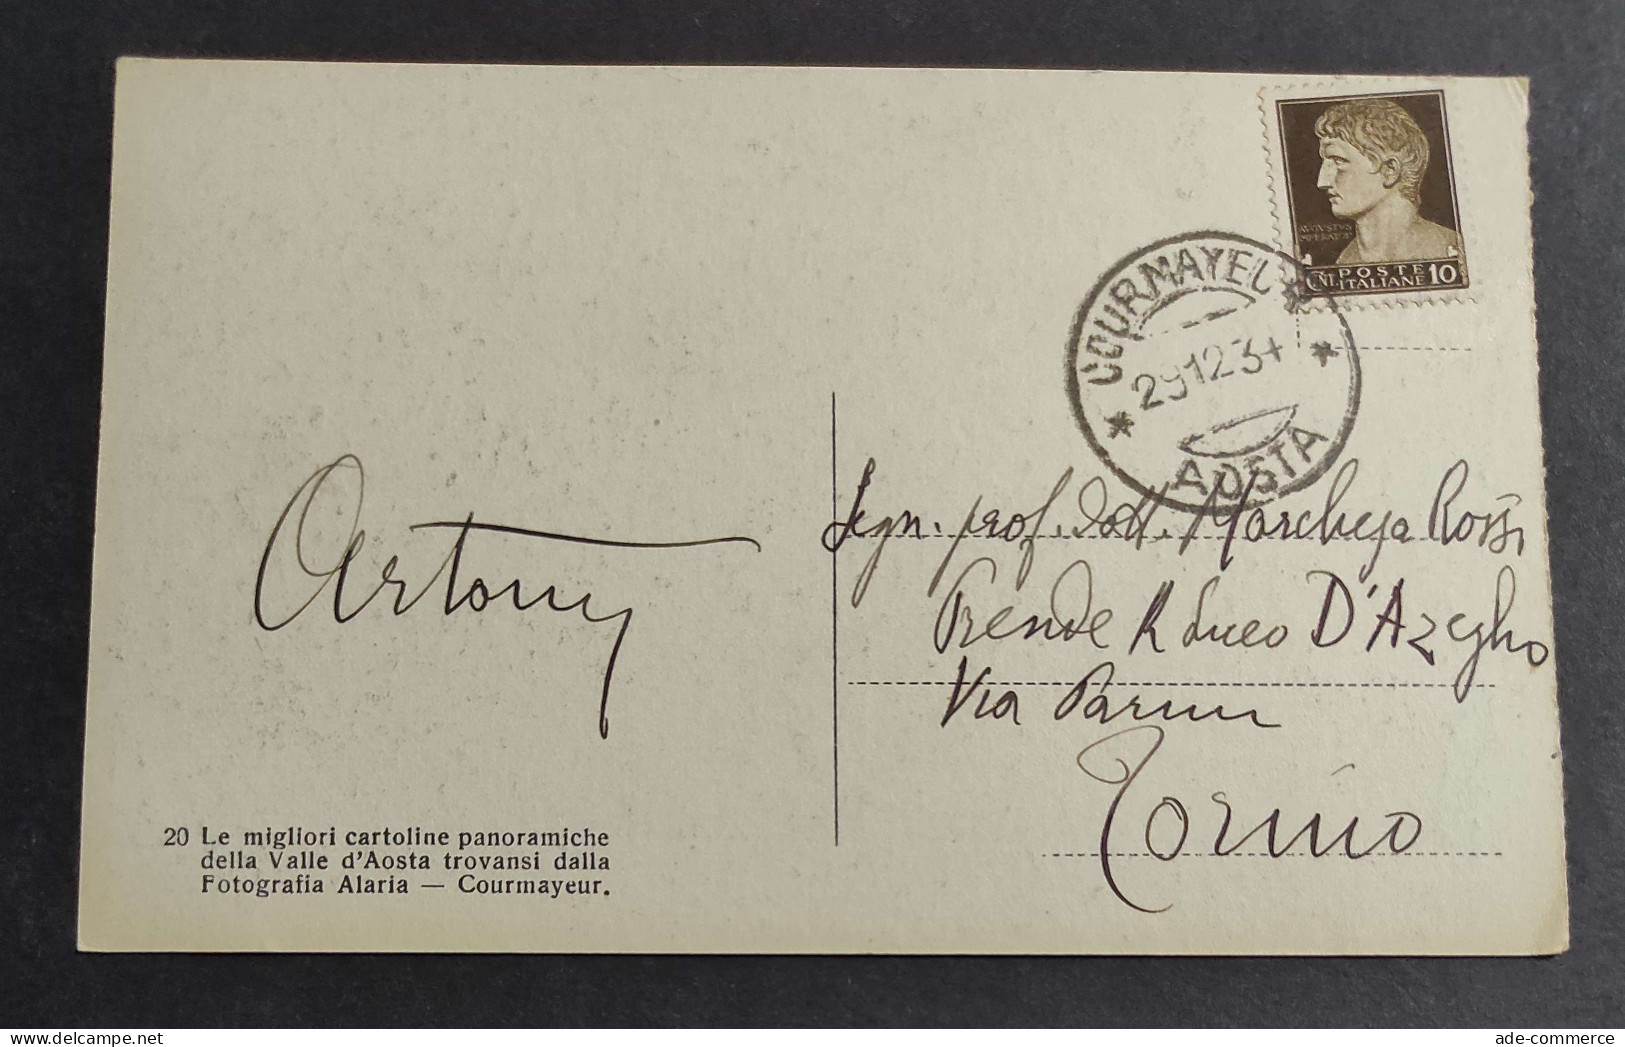 AVGVSTVS
IMPERATOR
CNI. POSTE ITALIANE 10
COURMAYEUR
29.12.34
* *
AOSTA
Segn. prof. Dott. Marchesa Rossi
Preside R Liceo D'Azeglio
Via Parini
Torino
20 Le migliori cartoline panoramiche
della Valle d'Aosta trovansi dalla
Fotografia Alaria — Courmayeur.
ade-commerce